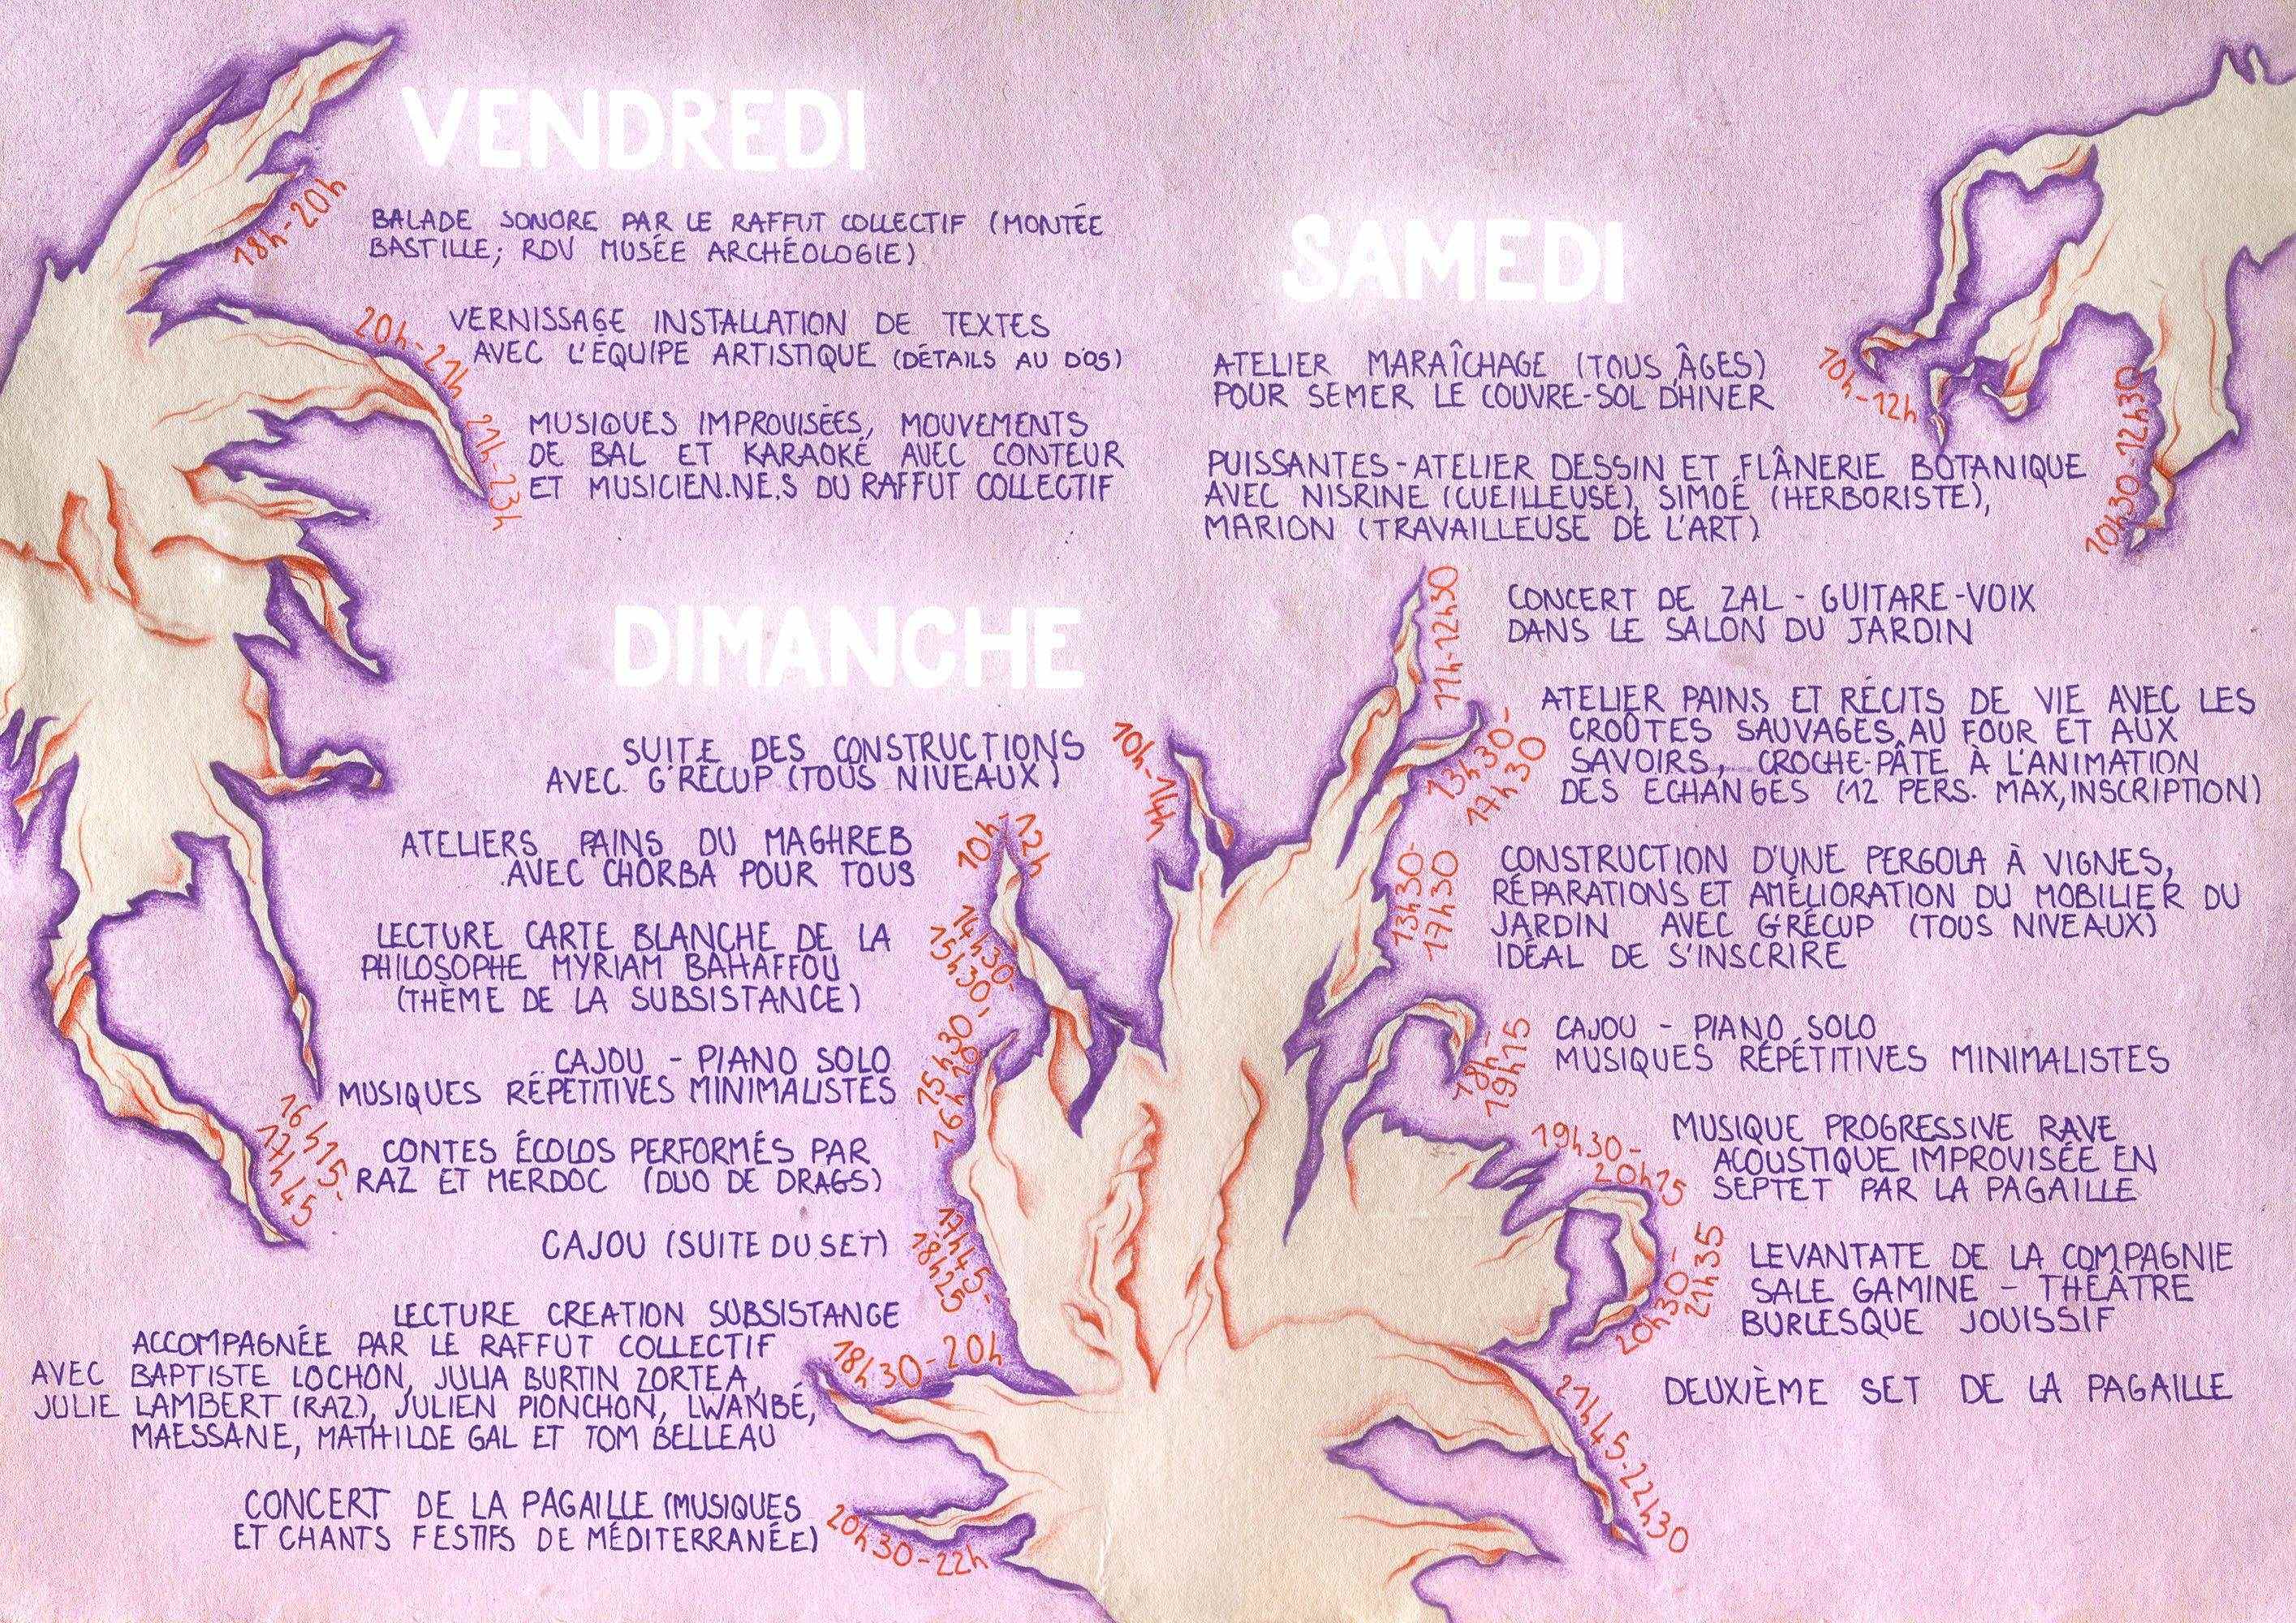 VENDREDI
18h-20h
BALADE SONORE PAR LE RAFFUT COLLECTIF (MONTÉE
BASTILLE; RDV MUSÉE ARCHÉOLOGIE)
20h-21h
VERNISSAGE INSTALLATION DE TEXTES
AVEC L'ÉQUIPE ARTISTIQUE (DÉTAILS AU DOS)
21h-23h
MUSIQUES IMPROVISÉES, MOUVEMENTS
DE BAL ET KARAOKÉ AVEC CONTEUR
ET MUSICIEN.NE.S DU RAFFUT COLLECTIF
SAMEDI
ATELIER MARAÎCHAGE (TOUS ÂGES)
POUR SEMER LE COUVRE-SOL D'HIVER
10h-12h
PUISSANTES-ATELIER DESSIN ET FLÂNERIE BOTANIQUE
AVEC NISRINE (CUEILLEUSE), SIMOÉ (HERBORISTE),
MARION (TRAVAILLEUSE DE L'ART)
10h30-12h30
11h-12h30
CONCERT DE ZAL - GUITARE-VOIX
DANS LE SALON DU JARDIN
13h30-
17h30
ATELIER PAINS ET RÉCITS DE VIE AVEC LES
CROÛTES SAUVAGES AU FOUR ET AUX
SAVOIRS, CROCHE-PÂTE À L'ANIMATION
DES ECHANGES (12 PERS. MAX, INSCRIPTION)
13h30-
17h30
CONSTRUCTION D'UNE PERGOLA À VIGNES,
RÉPARATIONS ET AMÉLIORATION DU MOBILIER DU
JARDIN AVEC G'RÉCUP (TOUS NIVEAUX)
IDÉAL DE S'INSCRIRE
18h-
19h15
CAJOU - PIANO SOLO
MUSIQUES RÉPÉTITIVES MINIMALISTES
19h30-
20h15
MUSIQUE PROGRESSIVE RAVE
ACOUSTIQUE IMPROVISÉE EN
SEPTET PAR LA PAGAILLE
20h30-
21h35
LEVANTATE DE LA COMPAGNIE
SALE GAMINE - THÉÂTRE
BURLESQUE JOUISSIF
21h45-22h30
DEUXIÈME SET DE LA PAGAILLE
DIMANCHE
SUITE DES CONSTRUCTIONS
AVEC G'RÉCUP (TOUS NIVEAUX)
10h-14h
ATELIERS PAINS DU MAGHREB
AVEC CHORBA POUR TOUS
10h-12h
LECTURE CARTE BLANCHE DE LA
PHILOSOPHE MYRIAM BAHAFFOU
(THÈME DE LA SUBSISTANCE)
14h30-
15h30
CAJOU - PIANO SOLO
MUSIQUES RÉPÉTITIVES MINIMALISTES
15h30-
16h10
16h15-
17h45
CONTES ÉCOLOS PERFORMÉS PAR
RAZ ET MERDOC (DUO DE DRAGS)
CAJOU (SUITE DU SET)
17h45-
18h25
LECTURE CREATION SUBSISTANCE
ACCOMPAGNÉE PAR LE RAFFUT COLLECTIF
AVEC BAPTISTE LOCHON, JULIA BURTIN ZORTEA,
JULIE LAMBERT (RAZ), JULIEN PIONCHON, LWANBÉ,
MAESSANE, MATHILDE GAL ET TOM BELLEAU
18h30-20h
CONCERT DE LA PAGAILLE (MUSIQUES
ET CHANTS FESTIFS DE MÉDITERRANÉE)
20h30-22h